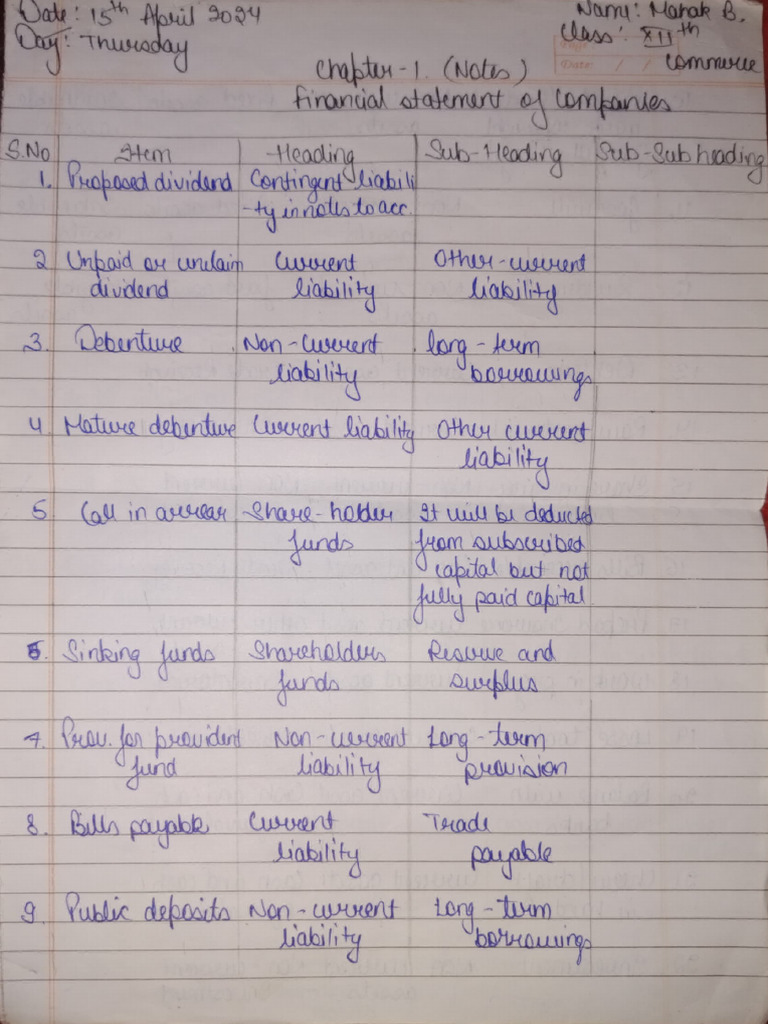 Date: 15th April 2024
Name: Mahak B.
Day: Thursday
Class: XIIth
Commerce
Chapter-1. (Notes)
Financial statement of companies
S.No Item Heading Sub-Heading Sub-Subheading
1. Proposed dividend Contingent liabili
-ty in notes to acc.
2 Unpaid or unclaim Current Other-current
dividend liability liability
3. Debenture Non-current long-term
liability borrowings
4 Mature debenture Current liability Other current
liability
5 Call in arrear Share-holder It will be deducted
funds from subscribed
capital but not
fully paid capital
6. Sinking funds Shareholders Reserve and
funds surplus
7. Prov. for provident Non-current Long-term
fund liability provision
8. Bills payable Current Trade
liability payable
9. Public deposits Non-current Long-term
liability borrowings